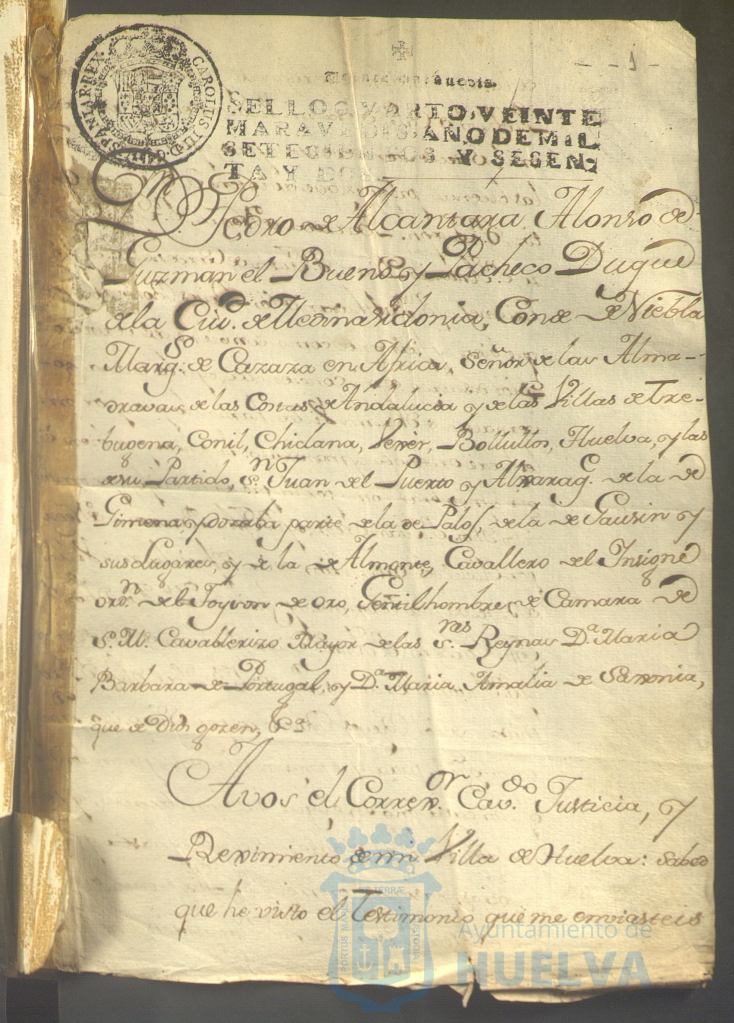 - 1 -
CAROLUS III D G HISPANIAR REX
SELLO QVARTO, VEINTE
MARAVEDIS, AÑO DE MIL
SETECIENTOS Y SESEN-
TA Y DOS.
Dn Pedro de Alcantara Alonso de
Guzman el Bueno, y Pacheco Duque
de la Ciud. de Medinasidonia, Conde de Niebla
Marqs. de Cazaza en Africa, Señor de las Alma-
dravas de las Costas de Andalucia y de las Villas de Tre-
bugena, Conil, Chiclana, Vexer, Bollullos, Huelva, y las
de su Partido, Sn Juan del Puerto y Alxaraqe. de la de
Gimena, y parte de la de Palos, de la de Gausin y
sus Lugares, y de la de Almonte, Cavallero del Insigne
ordn. del Toyson de oro, Gentilhombre de Camara de
S. M. Cavallerizo Mayor de las Sras Reynas Da. Maria
Barbara de Portugal, y Da. Maria Amalia de Saxonia,
que de Dios gozen, &a
Avos el Correxor. Cavdo. Justicia, y
Reximiento de mi Villa de Huelva: sabed
que he visto el Testimonio que me enviasteis
Ayuntamiento de
HUELVA